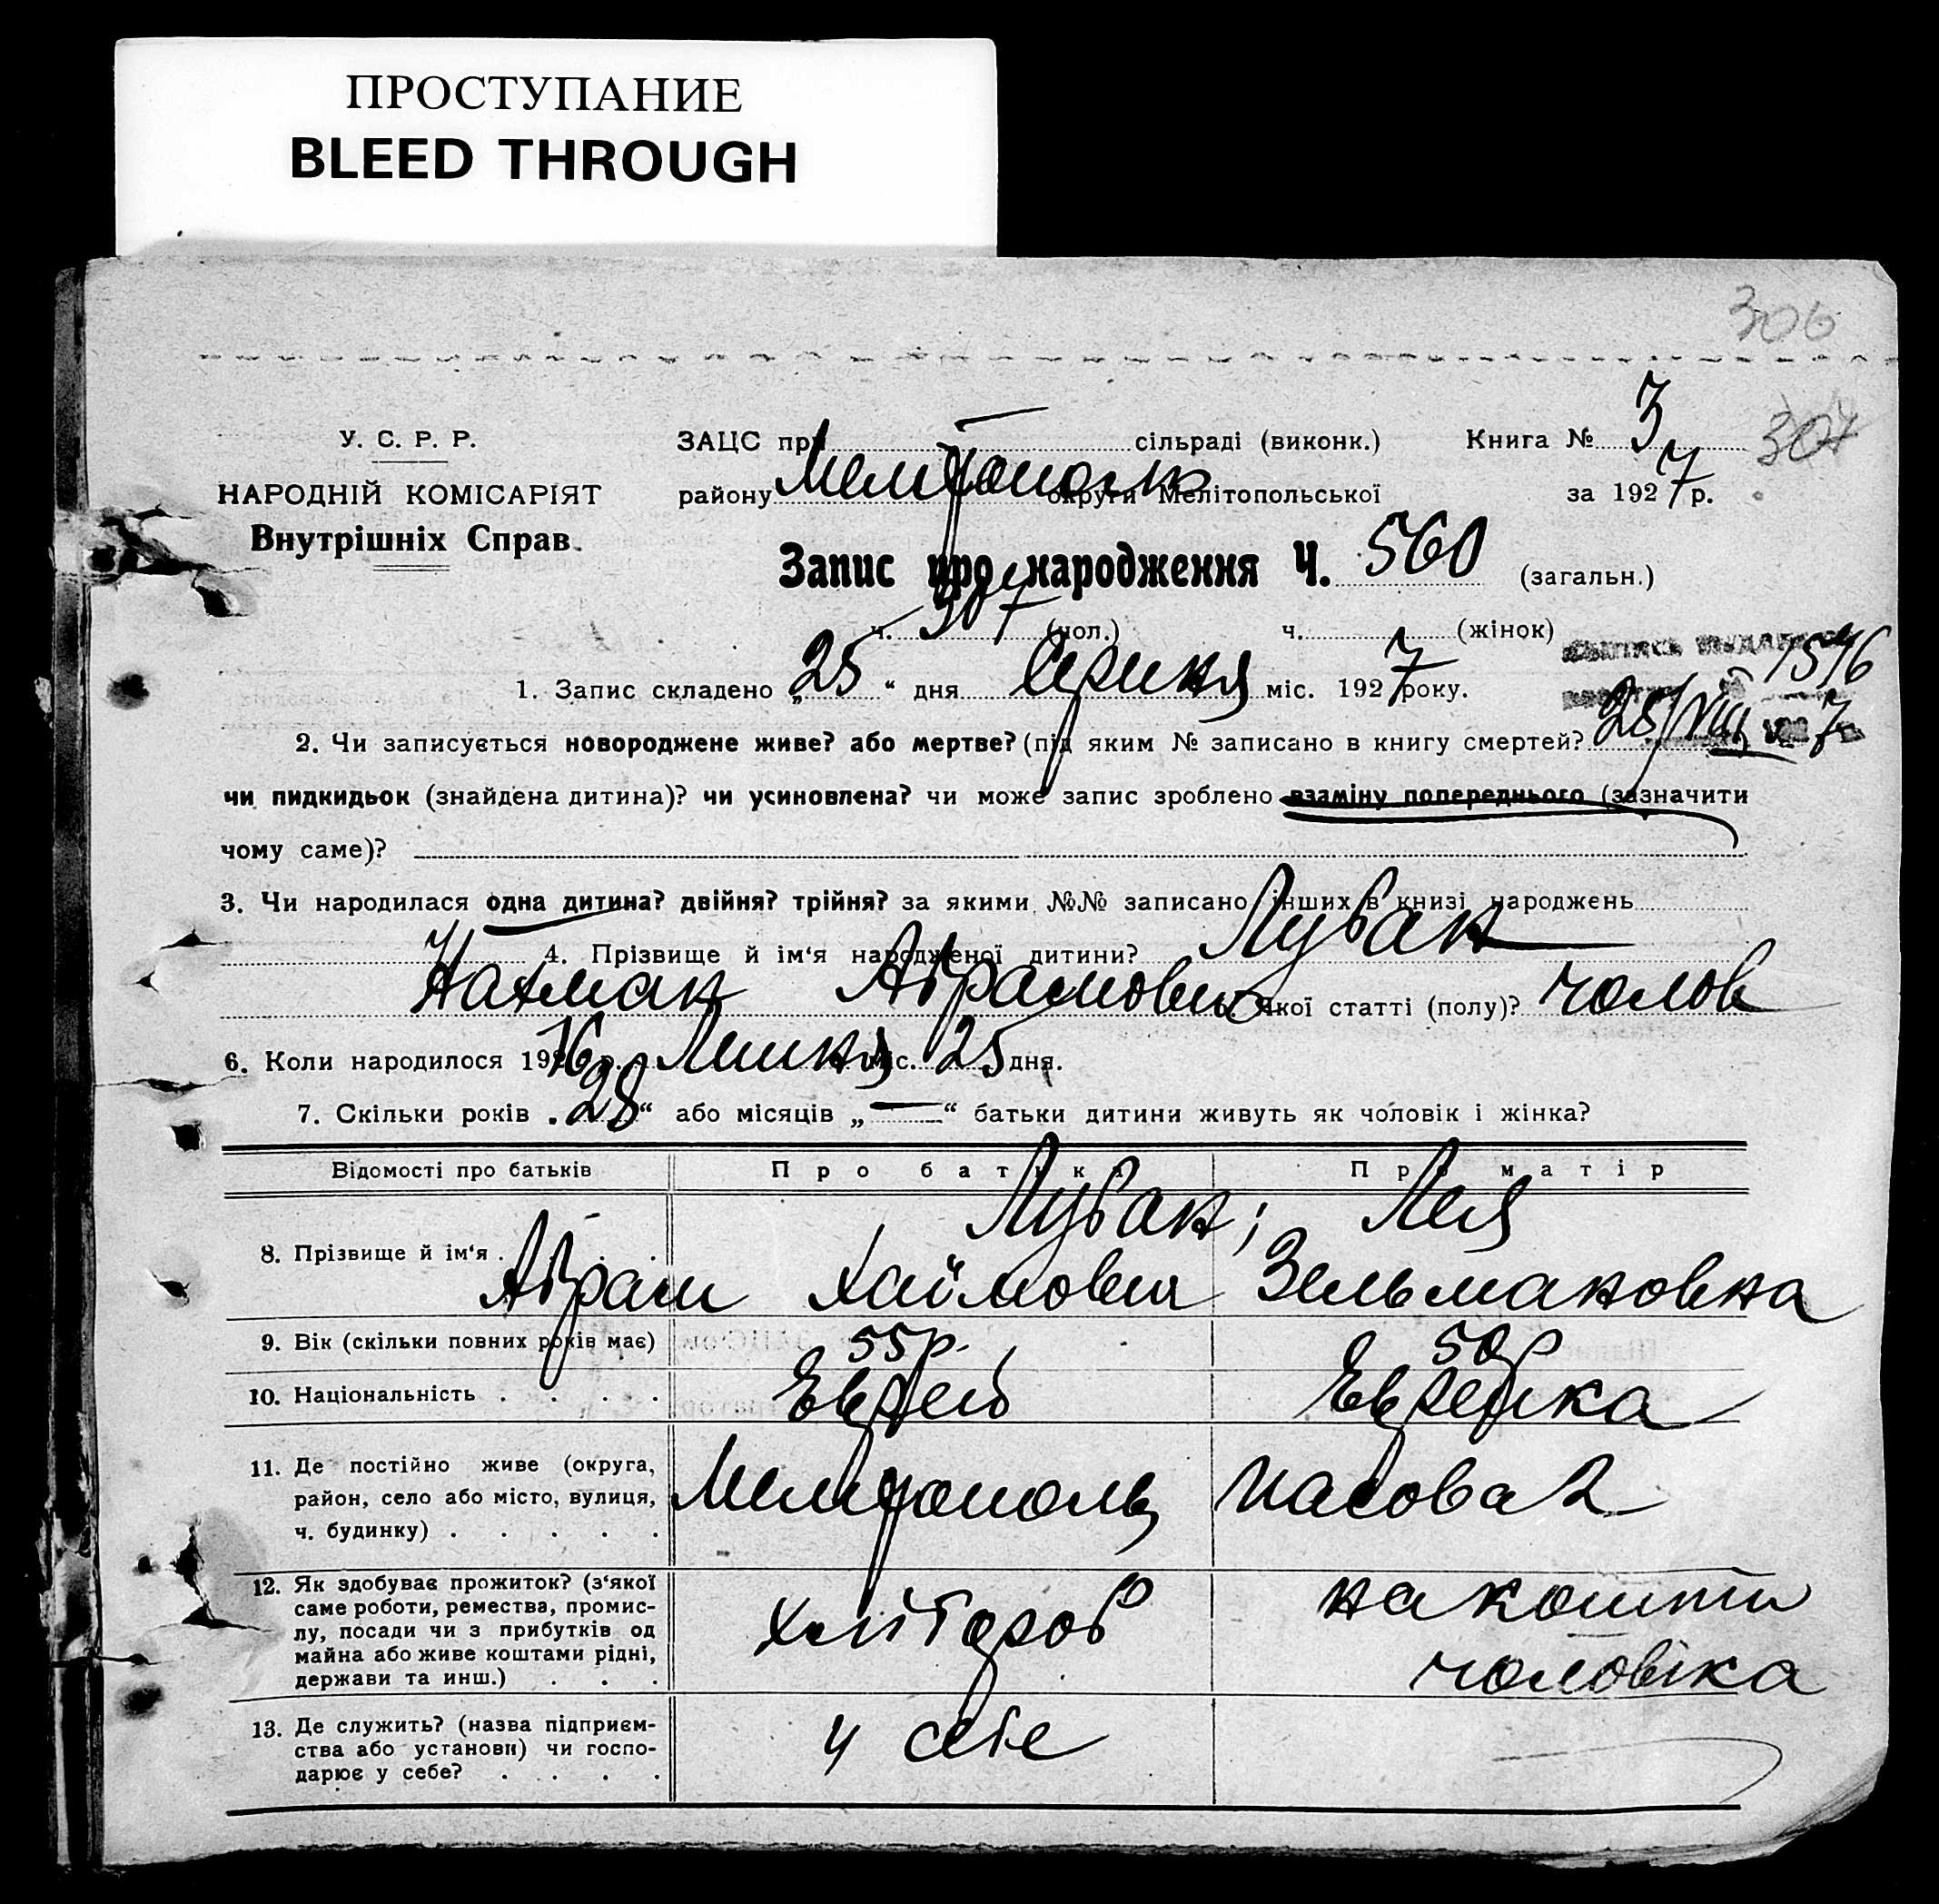 ПРОСТУПАНИЕ
BLEED THROUGH
306
У. С. Р. Р.
ЗАЦС при сільраді (виконк.) Книга № 3
307
НАРОДНІЙ КОМІСАРІЯТ
району Мелітопольск округи Мелітопольської за 1927 р.
Внутрішніх Справ.
Запис про народження Ч. 560 (загальн.)
ч. 307 (чол.) ч. (жінок)
1576
1. Запис складено „25“ дня Серпня міс. 1927 року.
2. Чи записується новороджене живе? або мертве? (під яким № записано в книгу смертей? 25/VIII 7
чи пидкидьок (знайдена дитина)? чи усиновлена? чи може запис зроблено взаміну попереднього (зазначити
чому саме)?
3. Чи народилася одна дитина? двійня? трійня? за якими №№ записано інших в книзі народжень
4. Прізвище й ім‘я народженої дитини? Лубан
Нахман Абрамович якої статті (полу)? чолов
6. Коли народилося 1916 Липня міс. 25 дня.
7. Скільки років „28“ або місяців „—“ батьки дитини живуть як чоловік і жінка?
Відомості про батьків Про батька Про матір
Лубан; Лея
8. Прізвище й ім‘я . . . .
Абрам Хаімович Зельмановна
9. Вік (скільки повних років має) 55р. 50р
10. Національність . . . . Еврей Еврейка
11. Де постійно живе (округа,
район, село або місто, вулиця, Мелітополь
ч. будинку) . . . . .
12. Як здобуває прожиток? (з‘якої
саме роботи, ремества, промис-
лу, посади чи з прибутків од
майна або живе коштами рідні,
держави та инш.) . . .
на кошти
чоловіка
13. Де служить? (назва підприєм-
ства або установи) чи госпо-
дарює у себе? . . . .
у себе